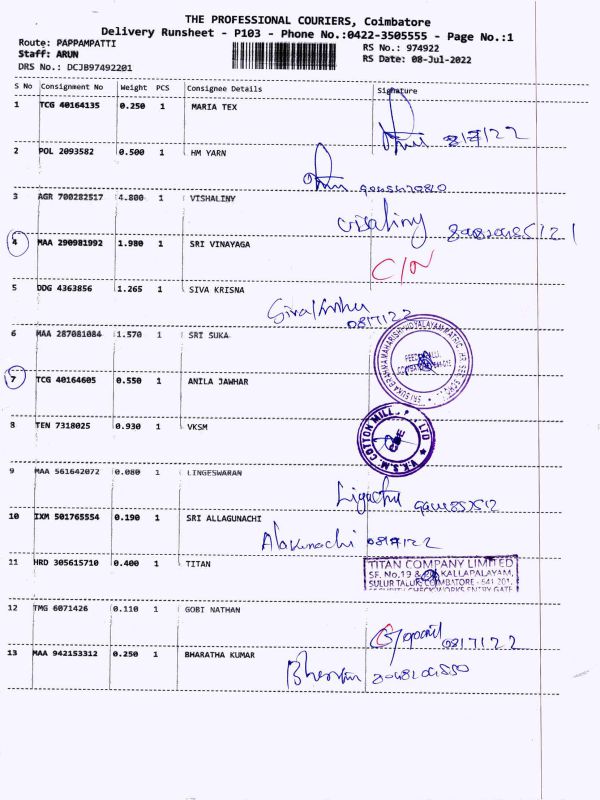 THE PROFESSIONAL COURIERS, Coimbatore
Delivery Runsheet - P103 - Phone No.:0422-3505555 - Page No.:1
Route: PAPPAMPATTI RS No.: 974922
Staff: ARUN RS Date: 08-Jul-2022
DRS No.: DCJB97492201
S No Consignment No Weight PCS Consignee Details Signature
1 TCG 40164135 0.250 1 MARIA TEX
8/7/22
2 POL 2093582 0.500 1 HM YARN
3 AGR 700282517 4.800 1 VISHALINY
Visaliny
4 MAA 290981992 1.980 1 SRI VINAYAGA
C/N
5 DDG 4363856 1.265 1 SIVA KRISNA
08/7/22
6 MAA 287081084 1.570 1 SRI SUKA
7 TCG 40164605 0.550 1 ANILA JAWHAR
8 TEN 7318025 0.930 1 VKSM
V.K.S.M. COTTON MILL LTD
9 MAA 561642072 0.080 1 LINGESWARAN
10 IXM 501765554 0.190 1 SRI ALLAGUNACHI
08/7/22
11 HRD 305615710 0.400 1 TITAN
TITAN COMPANY LIMITED
SF. No.19 & KALLAPALAYAM,
SULUR TALUK, COIMBATORE - 641 201.
SECURITY CHECK WORKS ENTRY GATE
12 TMG 6071426 0.110 1 GOBI NATHAN
08/7/22
13 MAA 942153312 0.250 1 BHARATHA KUMAR